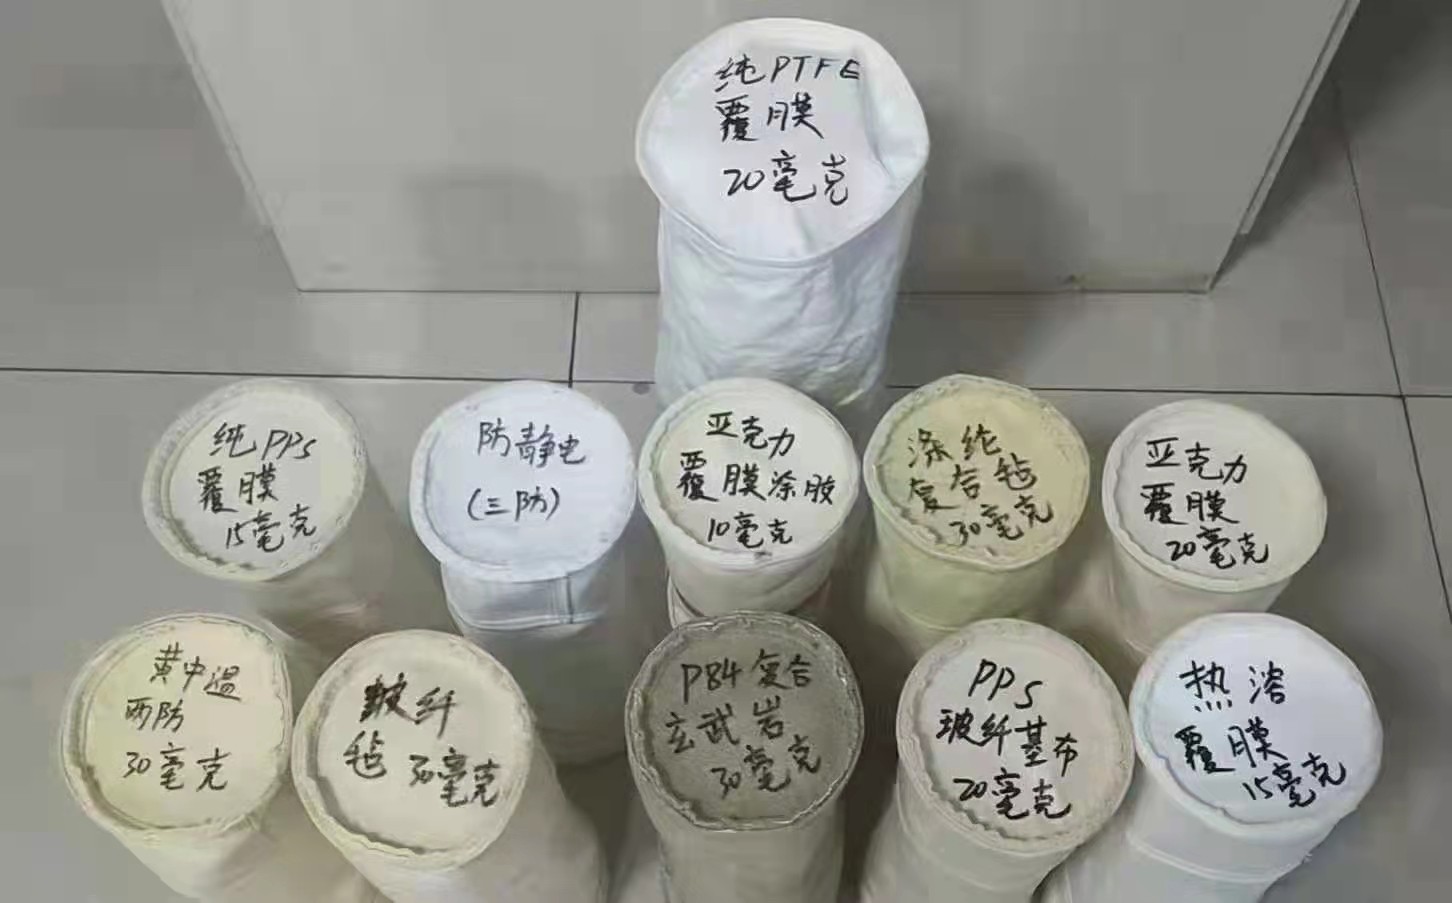 纯PTFE
覆膜
20毫克
纯PPS
覆膜
15毫克
防静电
(三防)
亚克力
覆膜涂胶
10毫克
涤纶
复合毡
30毫克
亚克力
覆膜
20毫克
黄中温
两防
30毫克
玻纤
毡 30毫克
P84复合
玄武岩
30毫克
PPS
玻纤基布
20毫克
热溶
覆膜
15毫克